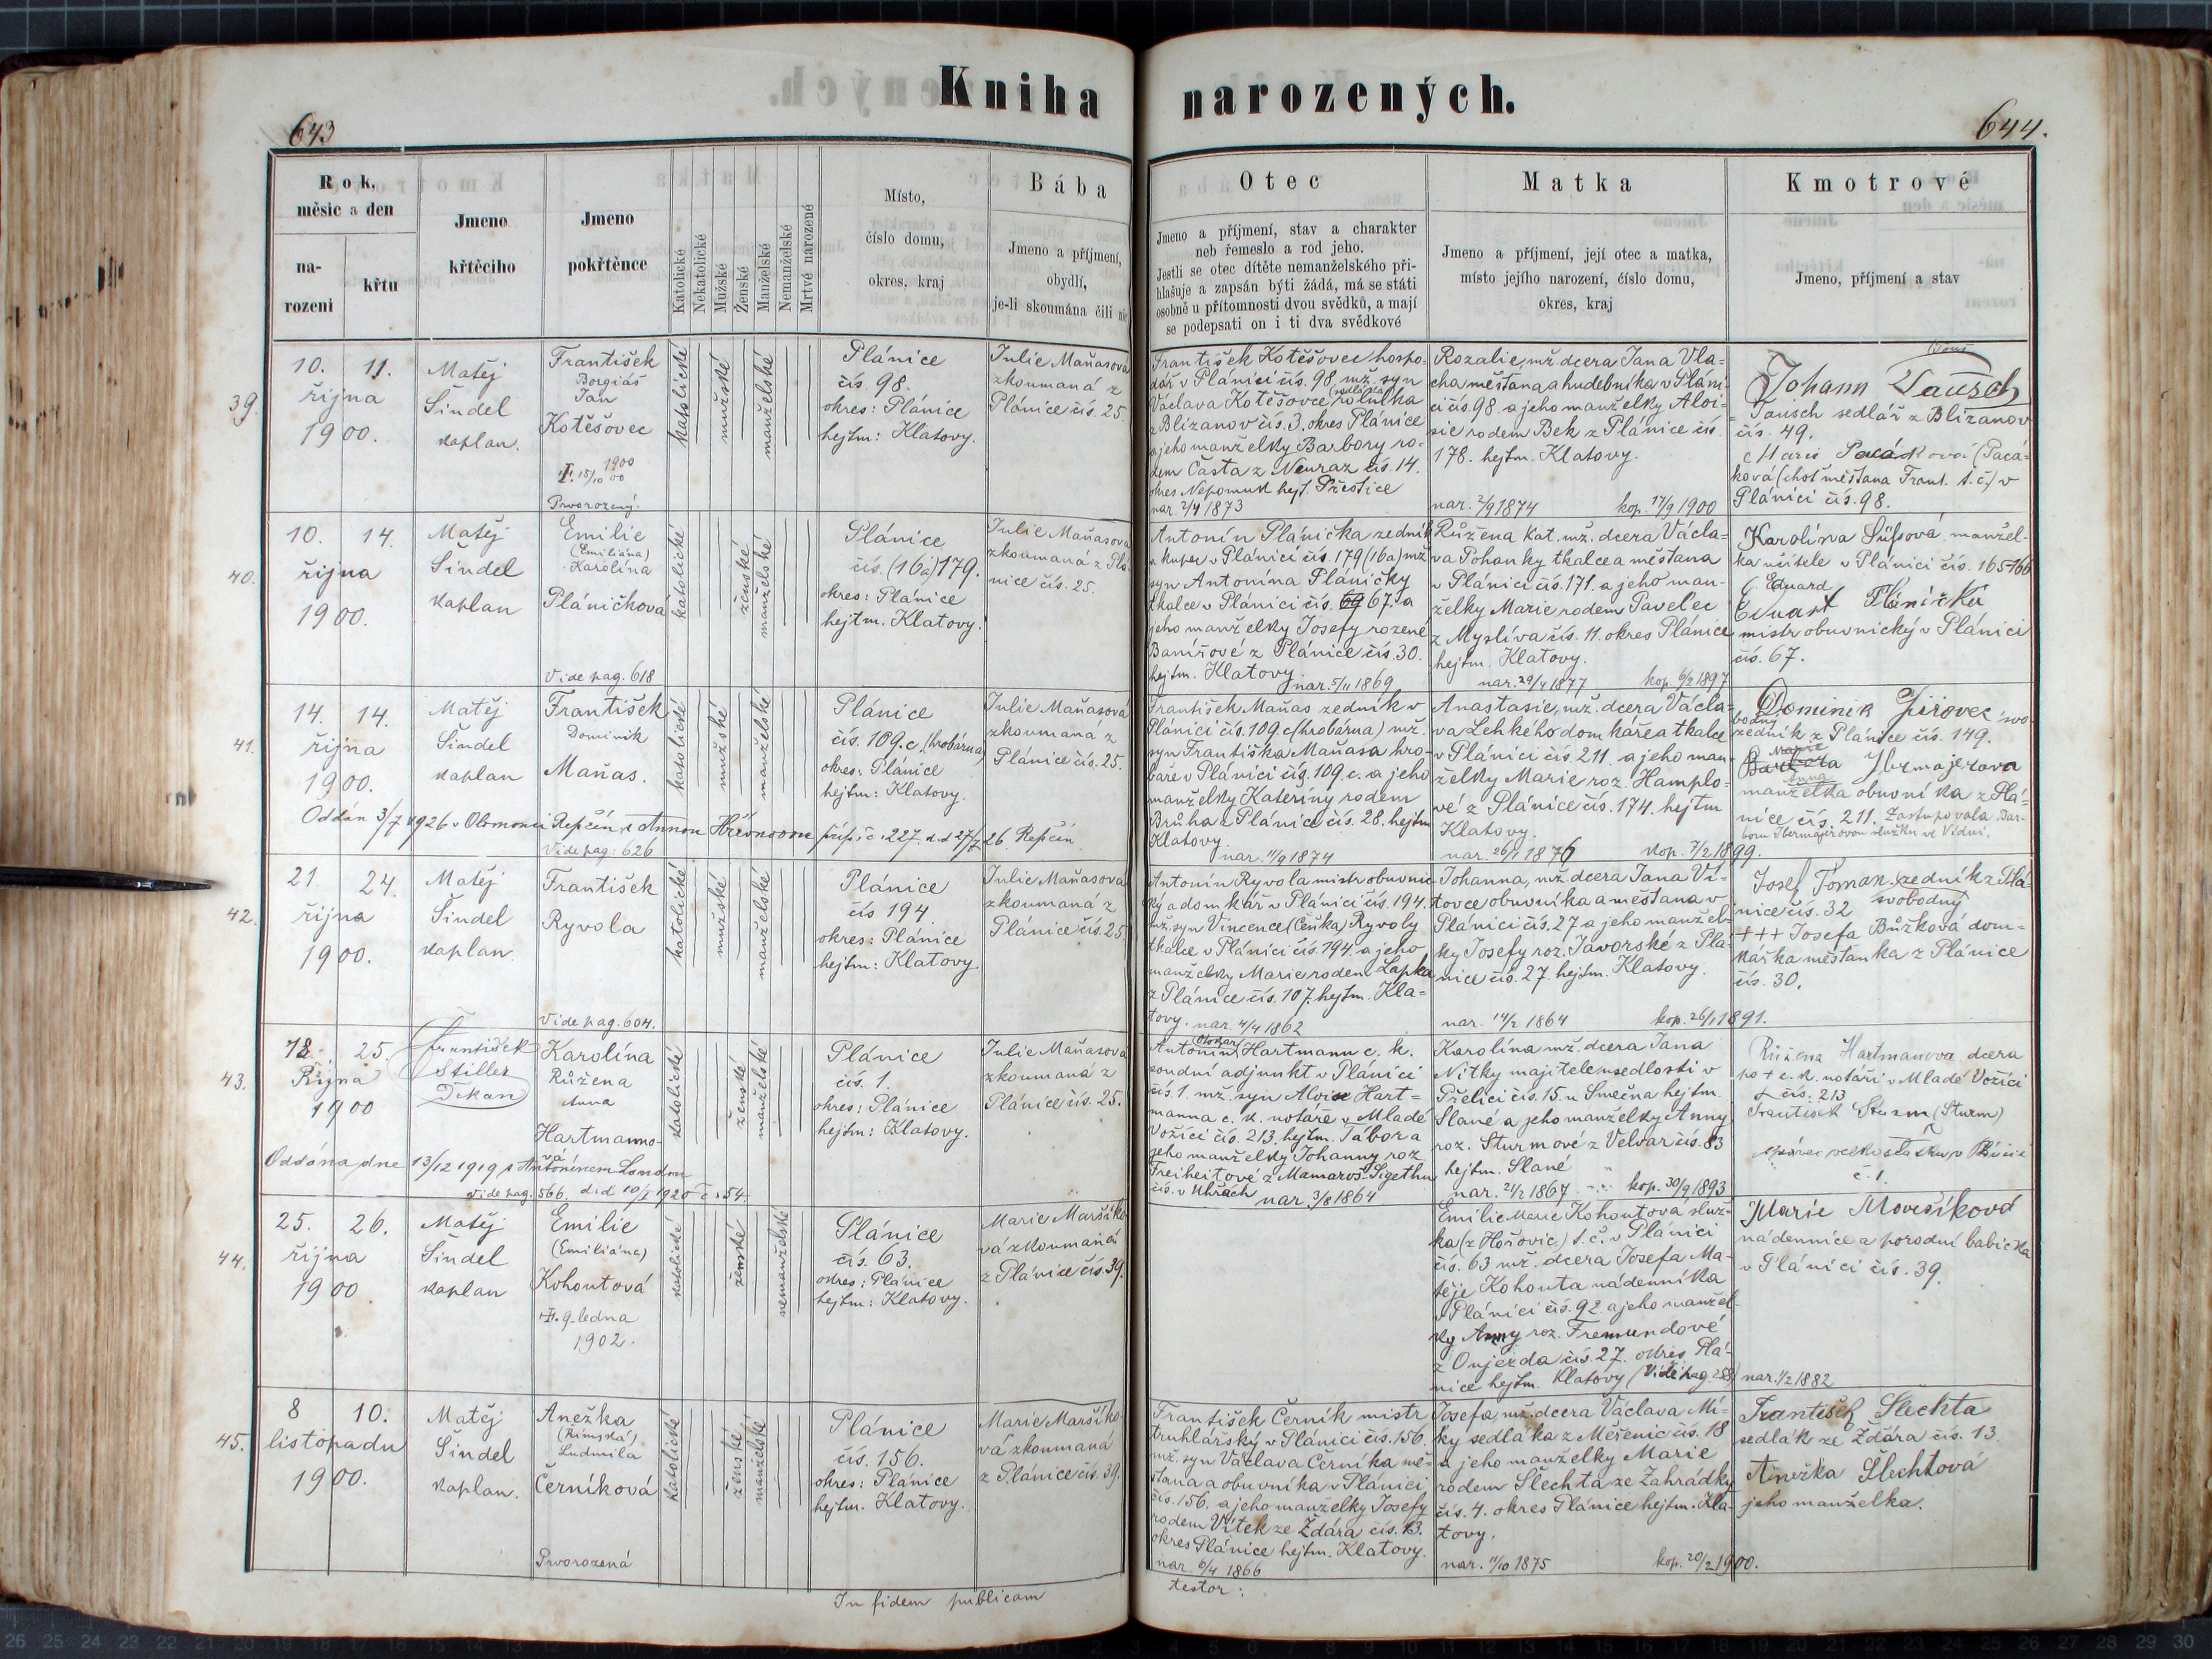 Kniha narozených.
643
644.
Rok,
měsíc a den
na-
rozeni
křtu
Jmeno
křtěcího
Jmeno
pokřtěnce
Katolické
Nekatolické
Mužské
Ženské
Manželské
Nemanželské
Mrtvé narozené
Místo,
číslo domu,
okres, kraj
Bába
Jmeno a příjmení,
obydlí,
je-li skoumána čili nic
Otec
Jmeno a příjmení, stav a charakter
neb řemeslo a rod jeho.
Jestli se otec dítěte nemanželského při-
hlašuje a zapsán býti žádá, má se státi
osobně u přítomnosti dvou svědků, a mají
se podepsati on i ti dva svědkové
Matka
Jmeno a příjmení, její otec a matka,
místo jejího narození, číslo domu,
okres, kraj
Kmotrové
Jmeno, příjmení a stav
39.
10. 11.
října
1900.
Matěj
Šindel
kaplan.
František
Borgiáš
Jan
Kotěšovec
1900
15/10 00
Prvorozený.
katolické
mužské
manželské
Plánice
čís. 98.
okres: Plánice
hejtm: Klatovy.
Julie Maňasová
zkoumaná z
Plánice čís. 25.
František Kotěšovec hospo-
dář v Plánici čís. 98. mž. syn
Václava Kotěšovce rolníka
z Blizanov čís. 3. okres Plánice
a jeho manželky Barbory ro-
dem Častа z Neuraz čís. 14.
okres Nepomuk hejt. Přestice
nar. 2/4 1873
Rozalie, mž. dcera Jana Vla-
cha měšťana a hudebníka v Pláni-
ci čís. 98. a jeho manželky Aloi-
sie rodem Bek z Plánice čís.
178. hejtm. Klatovy.
nar. 2/9 1874 kop. 17/9 1900
Johann Tausch
Tausch sedlář z Blizanov
čís. 49.
Marie Pacáková (Pacá-
ková) choť měšťana Frant. t. č.) v
Plánici čís. 98.
40.
10. 14.
října
1900.
Matěj
Šindel
kaplan
Emilie
(Emiliána)
Karolína
Pláničková
Vide pag. 618
katolické
ženské
manželské
Plánice
čís. (16a) 179.
okres: Plánice
hejtm. Klatovy.
Julie Maňasová
zkoumaná z Plá-
nice čís. 25.
Antonín Plánička zedník
a kupec v Plánici čís. 179 (16a) mž.
syn Antonína Pláničky
tkalce v Plánici čís. 67. a
jeho manželky Josefy rozené
z Plánice čís. 30.
hejtm. Klatovy.
nar. 5/11 1869
Růžena kat. mž. dcera Václa-
va Pohanky tkalce a měšťana
v Plánici čís. 171. a jeho man-
želky Marie rodem Pavelec
z Myslíva čís. 11. okres Plánice
hejtm. Klatovy.
nar. 29/4 1877 kop. 6/2 1897
Karolína, manžel-
ka učitele v Plánici čís. 165-166
Eduard
Plánička
mistr obuvnický v Plánici
čís. 67.
41.
14. 14.
října
1900.
Matěj
Šindel
kaplan
František
Dominik
Maňas.
Oddán 3/7 1926 v Olomouci Repčín s Annou příp. č. 227. d.d 27/7 26 Repčín
Vide pag: 626
katolické
mužské
manželské
Plánice
čís. 109. c. (hrobárna)
okres: Plánice
hejtm: Klatovy.
Julie Maňasová
zkoumaná z
Plánice čís. 25.
František Maňas zedník v
Plánici čís. 109. c (hrobárna) mž.
syn Františka Maňasa hro-
baře v Plánici čís. 109. c. a jeho
manželky Kateřiny rodem
Brůha z Plánice čís. 28. hejtm
Klatovy.
nar. 11/9 1874
Anastasie, mž. dcera Václa-
va Lehkého domkáře a tkalce
v Plánici čís. 211. a jeho man-
želky Marie roz. Hamplo-
vé z Plánice čís. 174. hejtm
Klatovy.
nar. 26/1 1876 kop. 7/2 1899.
Dominik Jirovec svo-
bodný
zedník z Plánice čís. 149.
Marie
Barbora
Anna
manželka obuvníka z Plá-
nice čís. 211. Zastupovala Bar-
bora služka ve Vídni.
42.
21. 24.
října
1900.
Matěj
Šindel
kaplan.
František
Ryvola
Vide pag. 604.
katolické
mužské
manželské
Plánice
čís 194.
okres: Plánice
hejtm: Klatovy.
Julie Maňasová
zkoumaná z
Plánice čís. 25.
Antonín Ryvola mistr obuvnic-
ký a domkář v Plánici čís. 194.
mž. syn Vincence (Čeňka) Ryvoly
tkalce v Plánici čís. 194. a jeho
manželky Marie rodem Lapka
z Plánice čís. 107. hejtm. Kla=
tovy. nar. 4/4 1862
Johanna, mž. dcera Jana Ví-
tovce obuvníka a měšťana v
Plánici čís. 27 a jeho manžel-
ky Josefy roz. Javorské z Plá-
nice čís. 27. hejtm. Klatovy.
nar. 14/2 1864 kop. 26/1 1891.
Josef Toman zedník z Plá-
svobodný
nice čís. 32
+++ Josefa Bůžková dom-
kářka měšťanka z Plánice
čís. 30.
43.
12. 25.
Října
1900
František
Stiller
Děkan
Karolína
Růžena
Anna
Hartmanno-
vá
Oddána dne 13/12 1919 s Antonínem
Vide pag. 566. d.d 10/I 1920 č. 54.
katolické
ženské
manželské
Plánice
čís. 1.
okres: Plánice
hejtm: Klatovy.
Julie Maňasová
zkoumaná z
Plánice čís. 25.
Otokar
Antonín Hartmann c. k.
soudní adjunkt v Plánici
čís. 1. mž. syn Aloise Hart=
manna c. k. notáře v Mladé
Vožici čís. 213. hejtm. Tábor a
jeho manželky Johanny roz
Freiheitové z Mamaroš-Sigethu
čís. v Uhrách nar. 3/8 1864
Karolína mž. dcera Jana
Nitky majitele usedlosti v
Přelíci čís. 15. u Smečna hejtm.
Slané a jeho manželky Anny
roz. Sturmové z Velvar čís. 83
hejtm. Slané
nar. 21/2 1867 kop. 30/9 1893
Růžena Hartmanova dcera
po + c. k. notáři v Mladé Vožici
čís. 213
František Sturm (Sturm)
správce velkostatku v Plánici
č. 1.
44.
25. 26.
října
1900
Matěj
Šindel
kaplan
Emilie
(Emiliána)
Kohoutová
9. ledna
1902.
katolické
ženské
nemanželské
Plánice
čís. 63.
okres: Plánice
hejtm: Klatovy.
Marie Maršíko-
vá zkoumaná
z Plánice čís. 39.
Emilie Marie Kohoutova služ-
ka (z Hořovic) t. č. v Plánici
čís. 63 mž. dcera Josefa Ma-
těje Kohouta nádenníka
v Plánici čís. 92. a jeho manžel-
ky Anny roz. Fremundové
z Oujezda čís. 27. okres Plá-
nice hejtm. Klatovy (Vide pag. 258) nar. 1/2 1882
Marie
nádennice a porodní babička
v Plánici čís. 39.
45.
8 10.
listopadu
1900.
Matěj
Šindel
kaplan.
Anežka
(Římská)
Ludmila
Černíková
Prvorozená
katolické
ženské
manželské
Plánice
čís. 156.
okres: Plánice
hejtm. Klatovy.
Marie Maršíko-
vá zkoumaná
z Plánice čís. 39.
František Černík mistr
truhlářský v Plánici čís. 156.
mž. syn Václava Černíka mě-
šťana a obuvníka v Plánici
čís. 156. a jeho manželky Josefy
rodem Vítek ze Ždára čís. 13.
okres Plánice hejtm. Klatovy.
nar. 6/4 1866
Josefa, mž. dcera Václava Mí-
ky sedláka z Měřenic čís. 18
a jeho manželky Marie
rodem Šlechta ze Zahrádky
čís. 4. okres Plánice hejtm. Kla-
tovy.
nar. 11/10 1875 kop. 20/2 1900.
František Šlechta
sedlák ze Ždára čís. 13.
Anežka Šlechtová
jeho manželka.
In fidem publicam
testor: